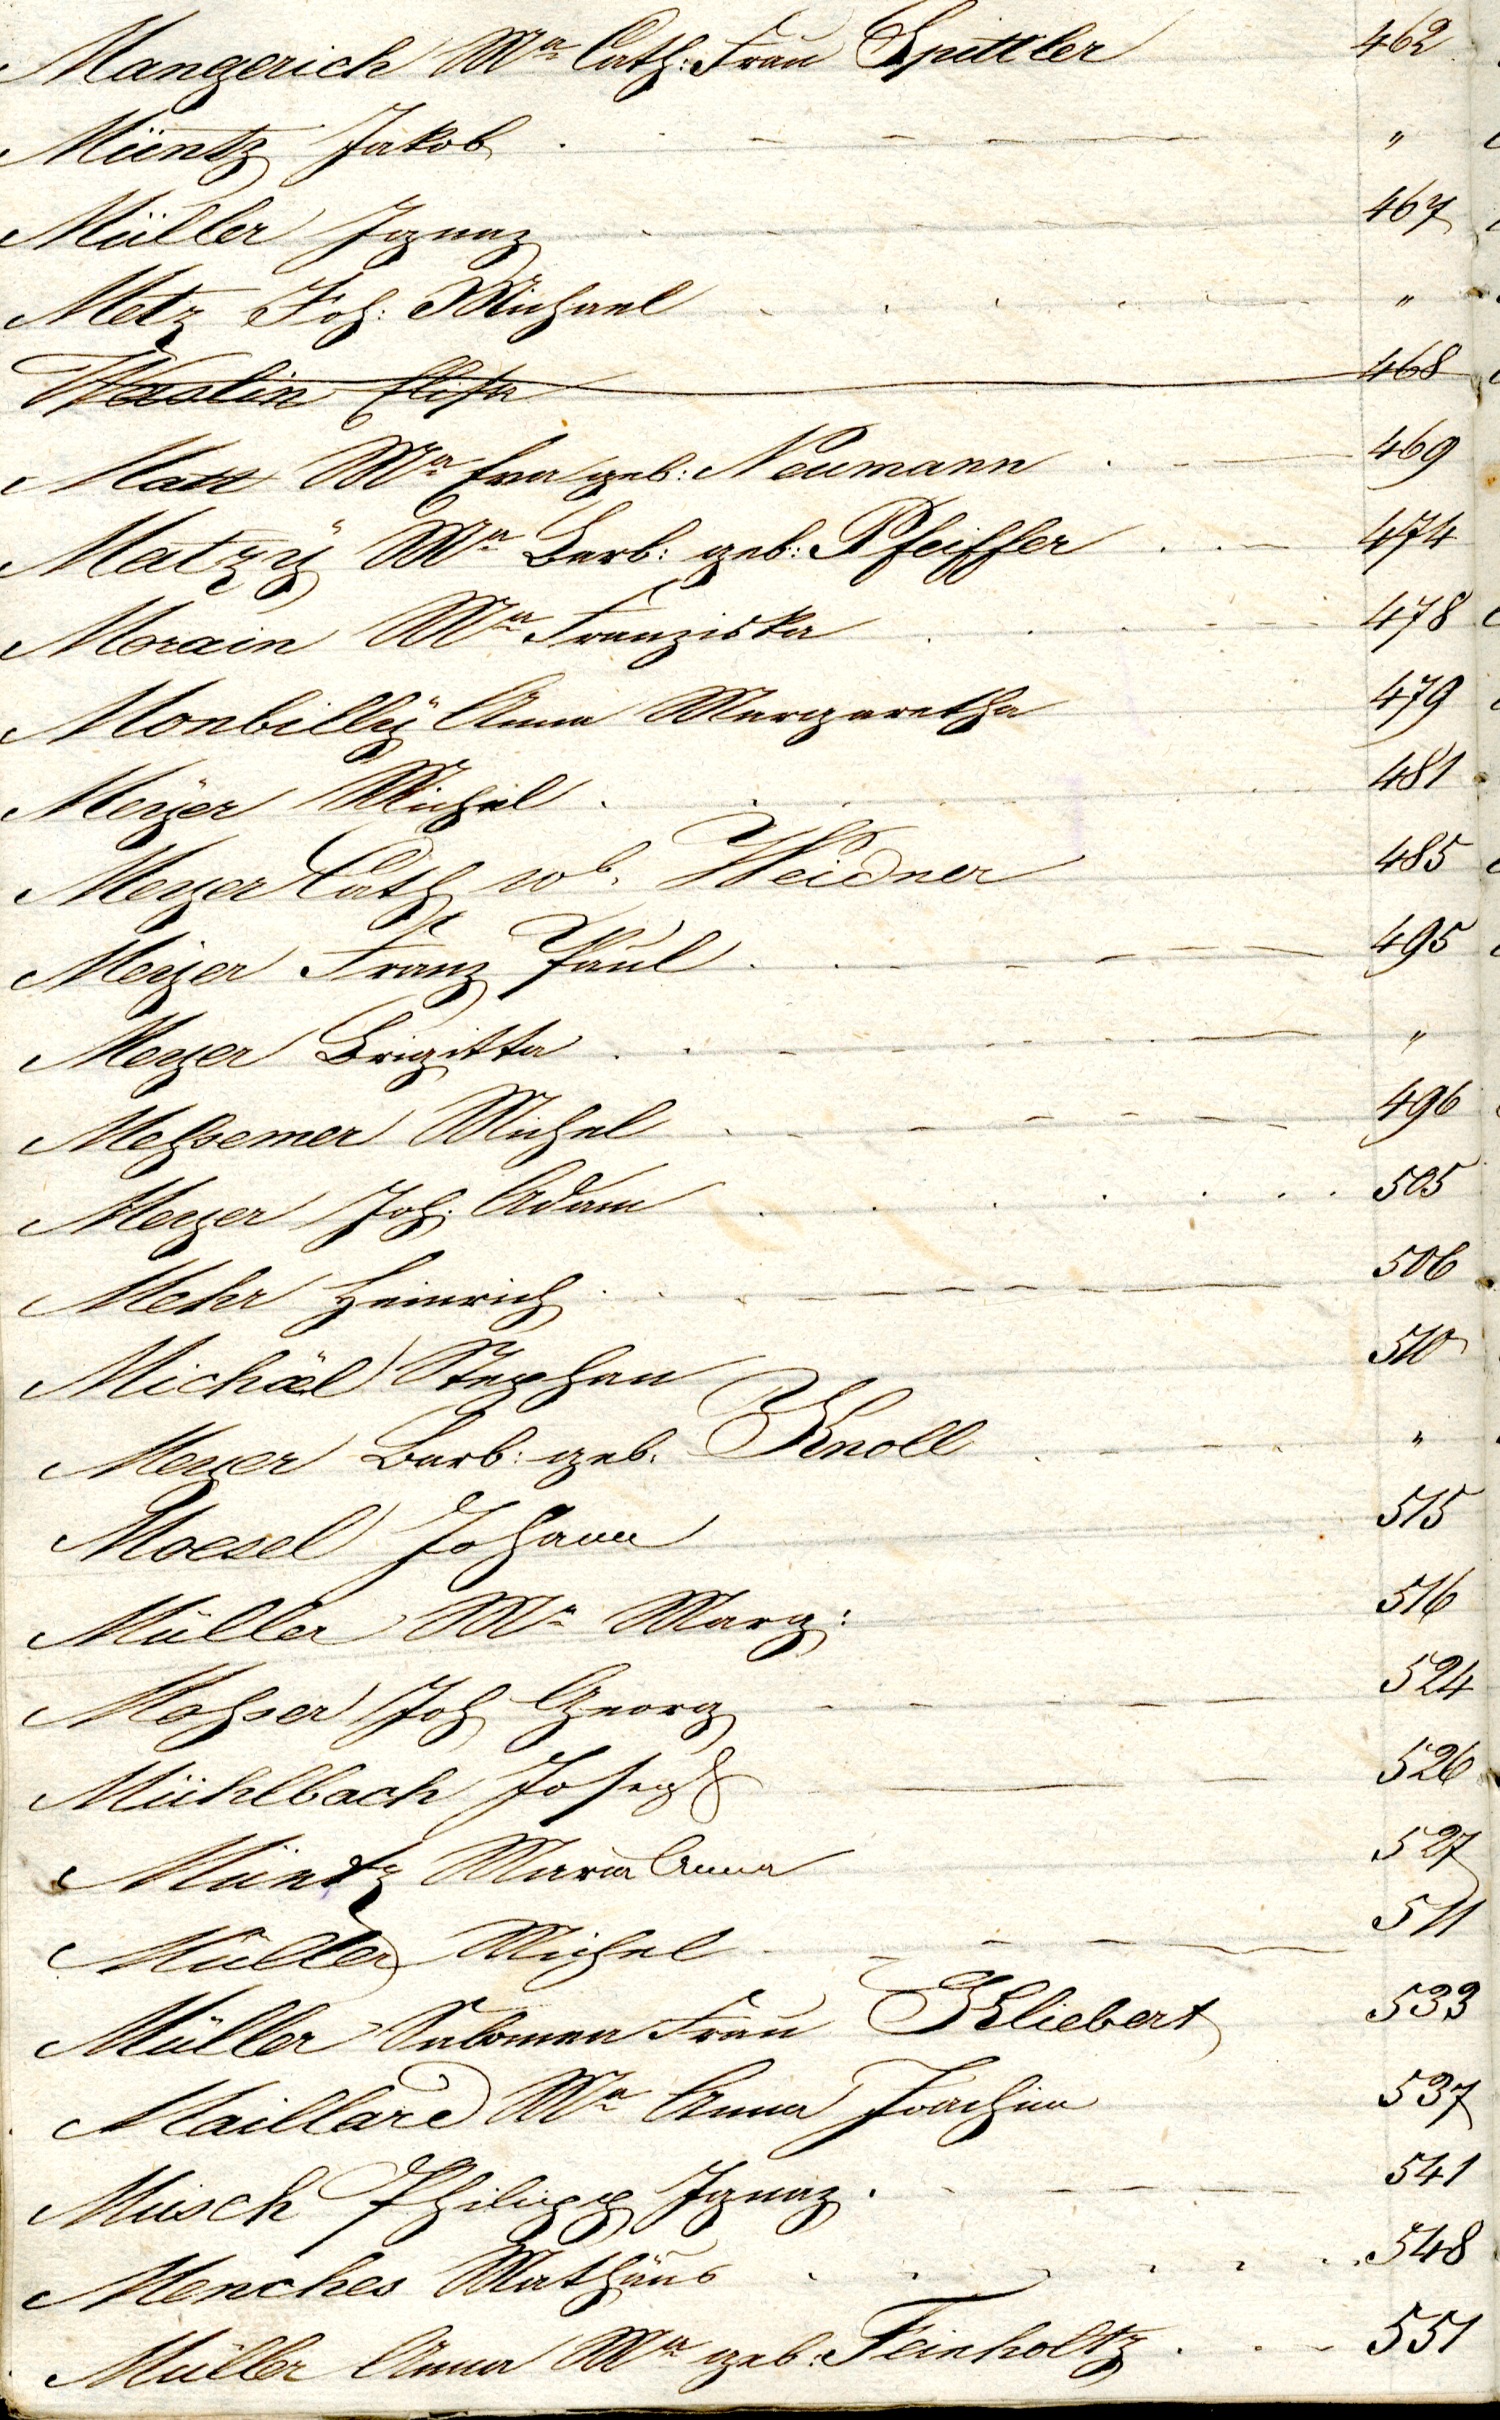 Mangerich Mª Cath: Frau Spittler 462
Müntz Jakob . - - - - "
Müller Ignaz - - - 467
Metz Joh: Michael . . . - - "
Elisa 468
Matt Mª Eva geb: Neumann . - - 469
Matzÿ Mª Barb: geb: Pfeiffer . . - 474
Morain Mª Franziska . . . - - 478
Monbillÿ Anna Margaretha 479
Meÿer Michel . . . 481
Meyer Cath wb. Weidner 485
Meÿer Franz Paul . . - - - 495
Meyer Brigitta . . - - - "
Meßemer Michel . - - - - 496
Meyer Joh. Adam . . . . . 505
Mehr Heinrich . . - - - - 506
Michäel Stephan 510
Meyer Barb: geb. Knoll . - - - "
Moesel Johann 515
Müller Mª Marg: 516
Moßer Joh Georg - - - 524
Mühlbach Joseph - - - 526
Müntz Maria Anna 527
Müller Michel - - - 511
Müller Salomea Frau Kliebert 533
Maillard Mª Anna Joachim 537
Müsch Philipp Ignaz . - - - 541
Menches Mathäus . . . . . 548
Müller Anna Mª geb: Feinholtz . . - 551